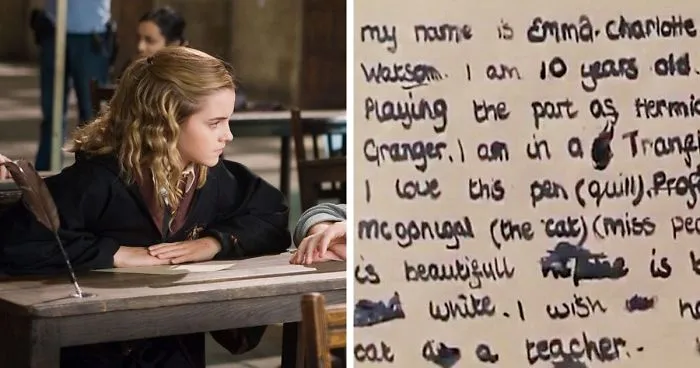 my name is Emma. Charlotte
Watson. I am 10 years old.
Playing the part as Hermi
Granger. I am in a Tranq
I love this pen (quill). Prof
mcgonigal (the cat) (miss pea
is beautifull is b
white. I wish ha
cat a teacher.-